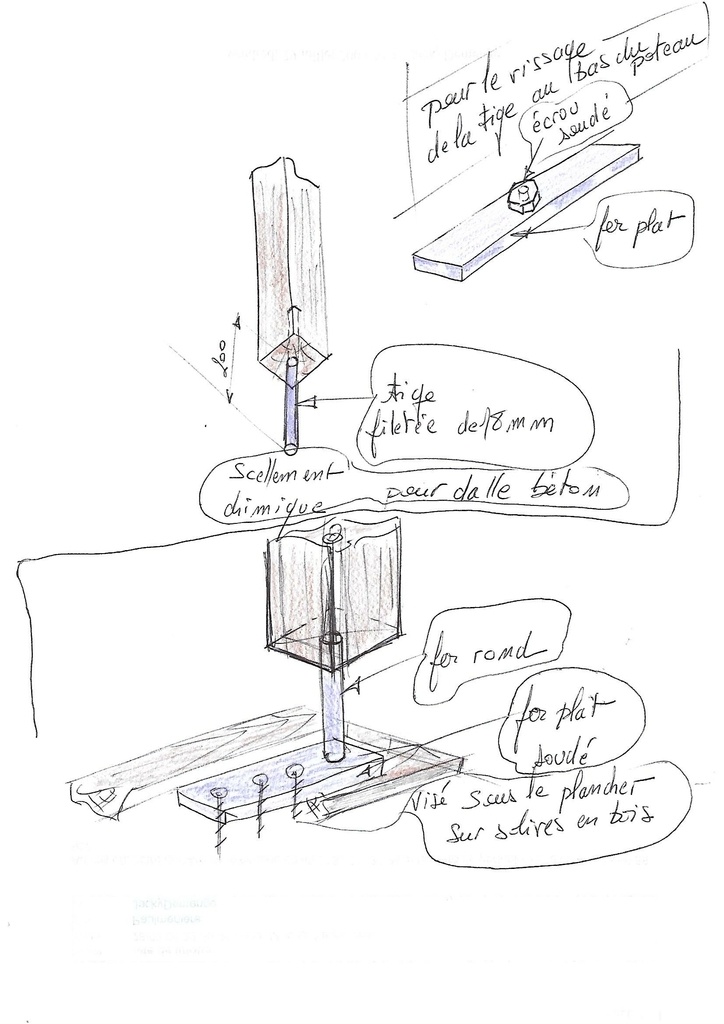 pour le vissage
de la tige au bas du
poteau
écrou
soudé
fer plat
200
tige
filetée de 18 mm
Scellement
chimique pour dalle béton
fer rond
fer plat
soudé
Visé sous le plancher
sur solives en bois